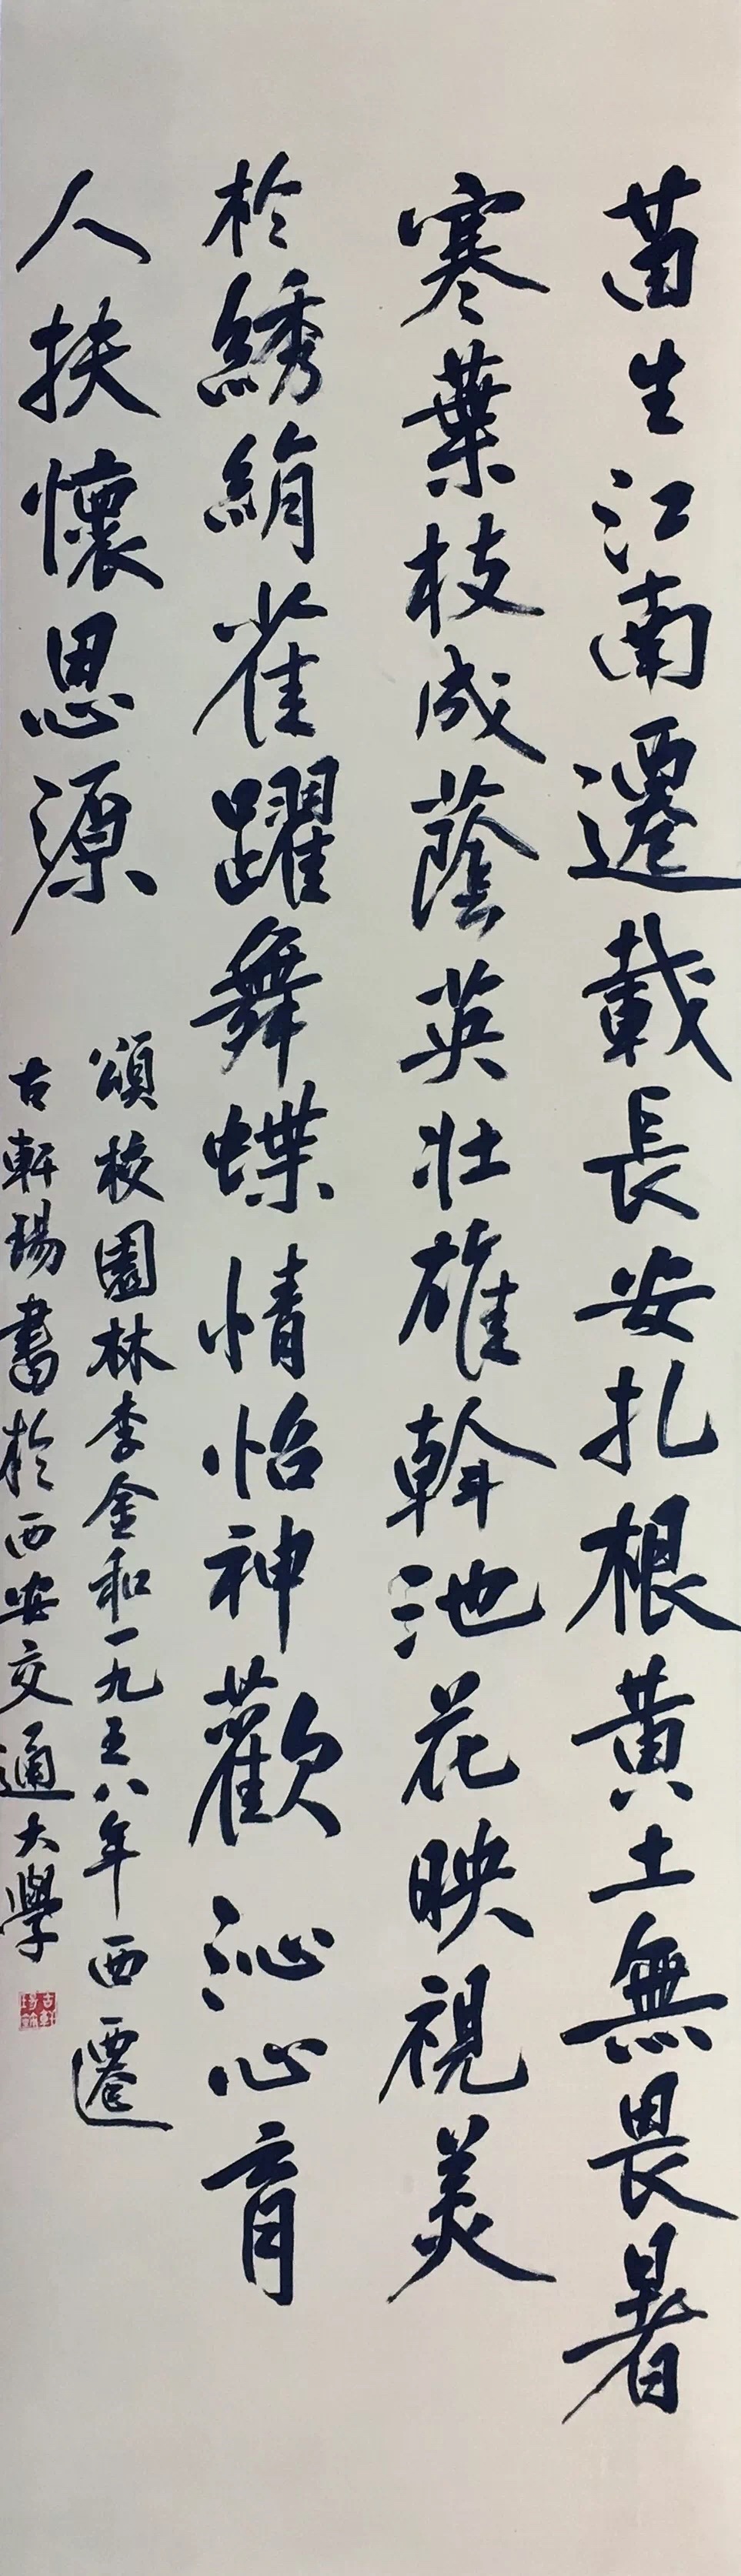 苗生江南遷載長安扎根黃土無畏暑
寒葉枝成蔭英壯雄斡池花映視美
於綉絹雀躍舞蝶情怡神歡沁心育
人扶懷思源
頌校園林李金和一九五八年西遷
古軒瑒書於西安交通大學